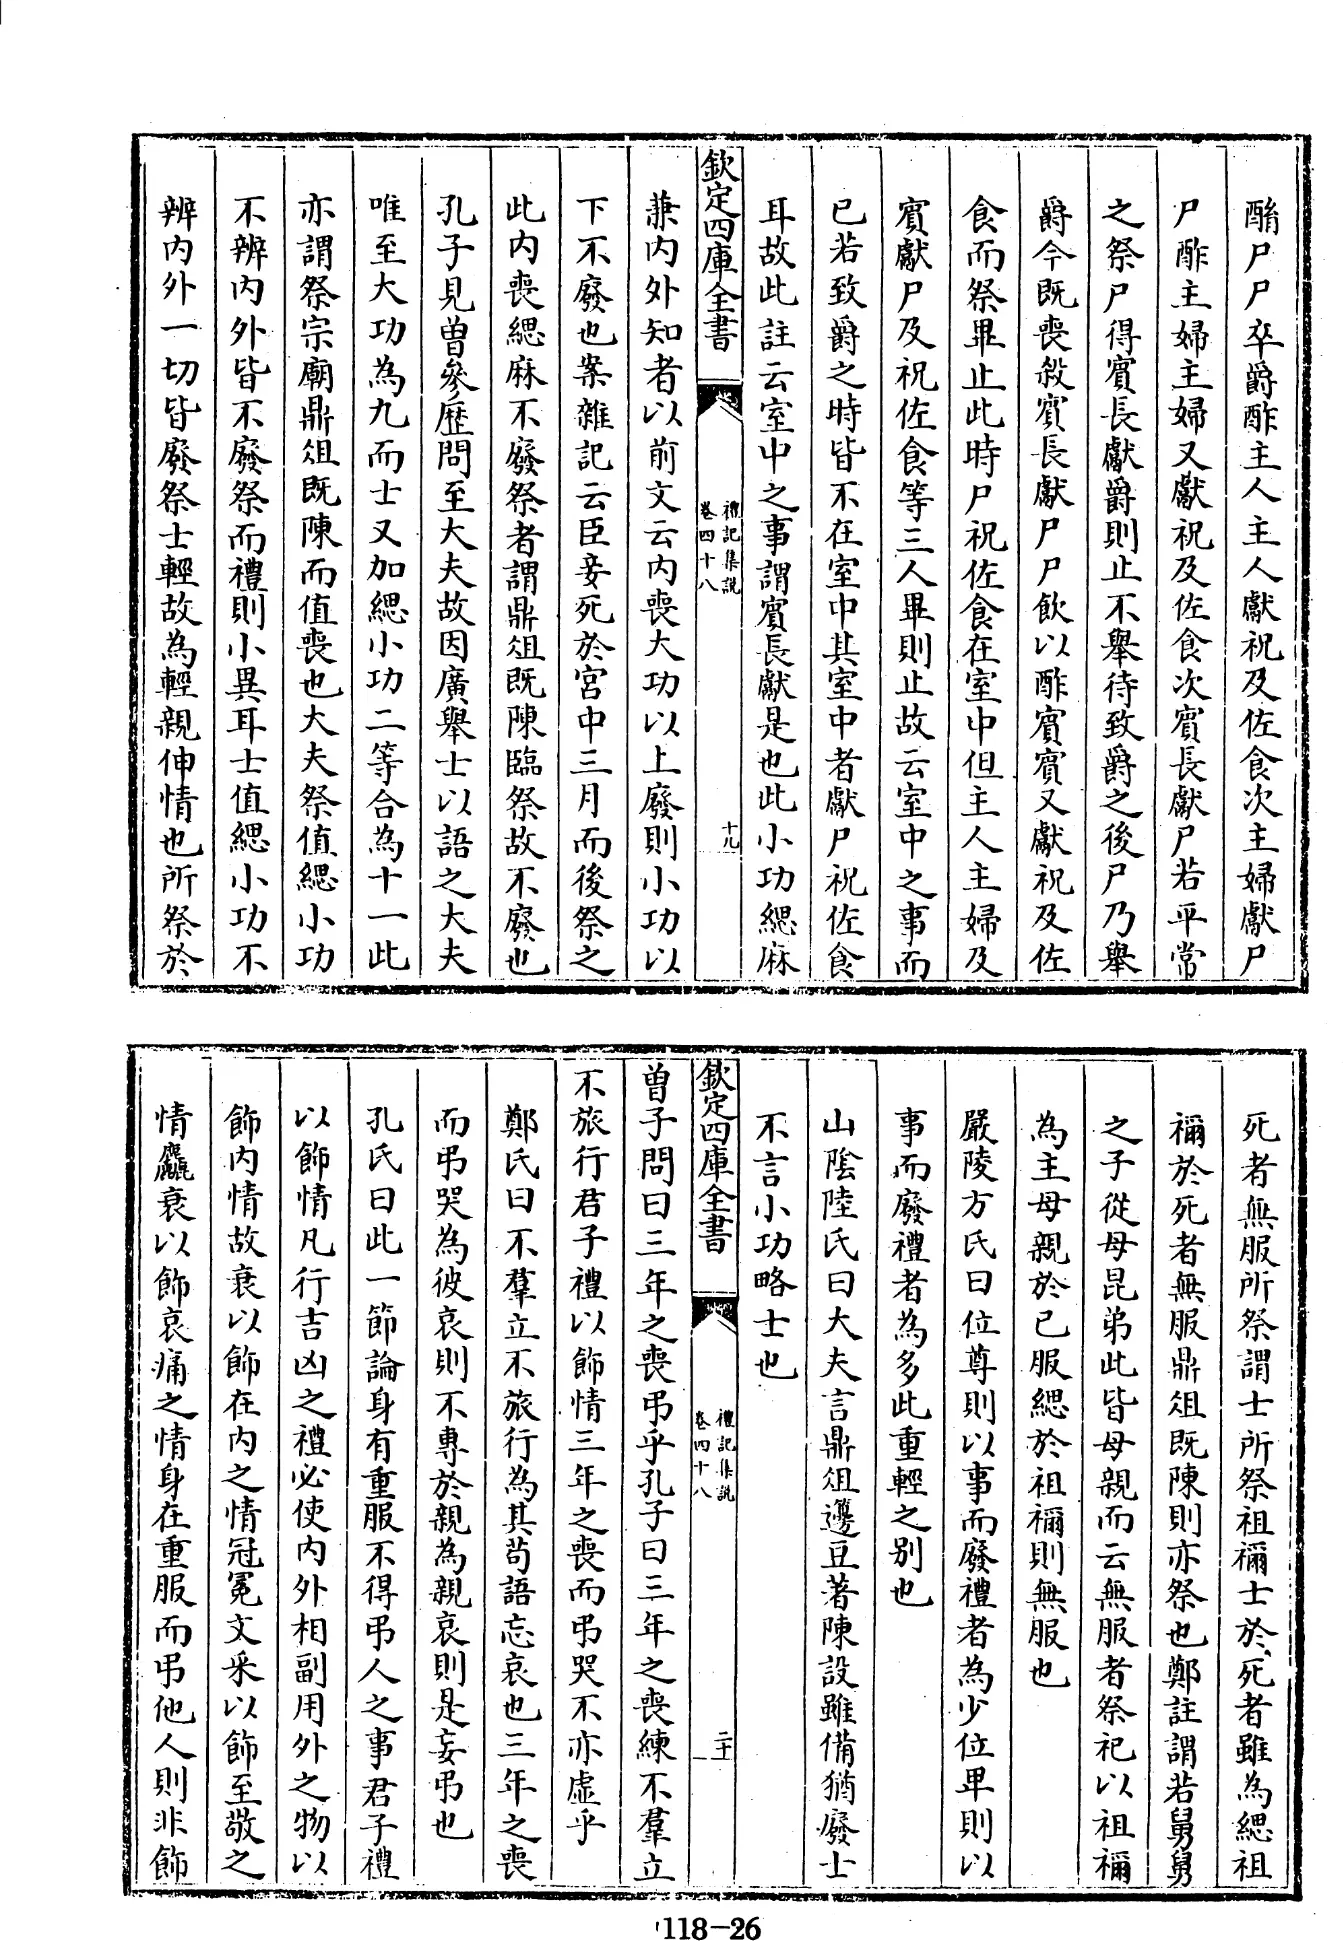 酳尸尸卒爵酢主人主人獻祝及佐食次主婦獻尸
尸酢主婦主婦又獻祝及佐食次賓長獻尸若平常
之祭尸得賓長獻爵則止不舉待致爵之後尸乃舉
爵今既喪殺賓長獻尸尸飲以酢賓賓又獻祝及佐
食而祭畢止此時尸祝佐食在室中但主人主婦及
賓獻尸及祝佐食等三人畢則止故云室中之事而
已若致爵之時皆不在室中其室中者獻尸祝佐食
耳故此註云室中之事謂賓長獻是也此小功緦麻
欽定四庫全書
禮記集說
卷四十八
十九
兼内外知者以前文云内喪大功以上廢則小功以
下不廢也案雜記云臣妾死於宮中三月而後祭之
此内喪緦麻不廢祭者謂鼎俎既陳臨祭故不廢也
孔子見曾參歷問至大夫故因廣舉士以語之大夫
唯至大功為九而士又加緦小功二等合為十一此
亦謂祭宗廟鼎俎既陳而值喪也大夫祭值緦小功
不辨内外皆不廢祭而禮則小異耳士值緦小功不
辨内外一切皆廢祭士輕故為輕親伸情也所祭於
死者無服所祭謂士所祭祖禰士於死者雖為緦祖
禰於死者無服鼎俎既陳則亦祭也鄭註謂若舅舅
之子從母昆弟此皆母親而云無服者祭祀以祖禰
為主母親於己服緦於祖禰則無服也
嚴陵方氏曰位尊則以事而廢禮者為少位卑則以
事而廢禮者為多此重輕之别也
山陰陸氏曰大夫言鼎俎籩豆著陳設雖備猶廢士
不言小功略士也
欽定四庫全書
禮記集說
卷四十八
二十
曾子問曰三年之喪弔乎孔子曰三年之喪練不羣立
不旅行君子禮以飾情三年之喪而弔哭不亦虛乎
鄭氏曰不羣立不旅行為其苟語忘哀也三年之喪
而弔哭為彼哀則不專於親為親哀則是妄弔也
孔氏曰此一節論身有重服不得弔人之事君子禮
以飾情凡行吉凶之禮必使内外相副用外之物以
飾内情故衰以飾在内之情冠冕文采以飾至敬之
情麤衰以飾哀痛之情身在重服而弔他人則非飾
118-26